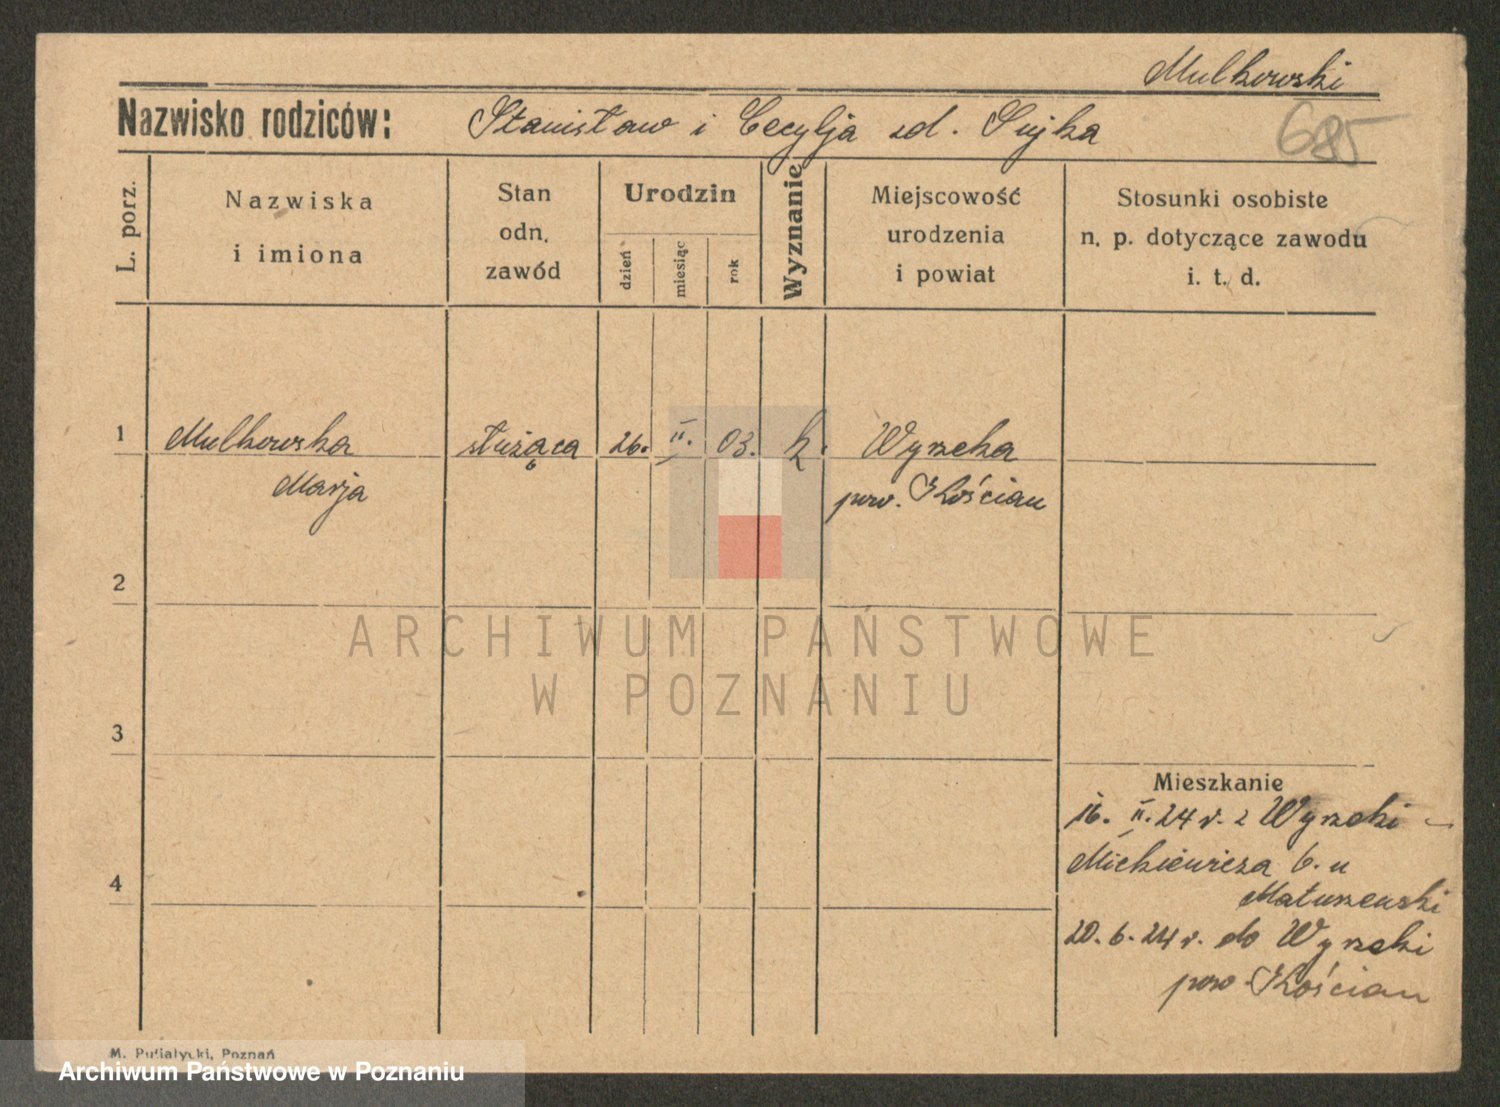 Mulkowski
Nazwisko rodziców: Stanisław i Cecylja zd. Sujka
685
L. porz.
Nazwiska
i imiona
Stan
odn.
zawód
Urodzin
dzień
miesiąc
rok
Wyznanie
Miejscowość
urodzenia
i powiat
Stosunki osobiste
n. p. dotyczące zawodu
i. t. d.
1 Mulkowska służąca 26. II. 03. k. Wyrzeka
Marja pow. Kościan
2
ARCHIWUM PAŃSTWOWE
W POZNANIU
3
Mieszkanie
16. II. 24 r. z Wyrzeki -
Mickiewicza 6. u
4
Matuszewski
20. 6. 24 r. do Wyrzeki
pow. Kościan
M. Putiatycki, Poznań
Archiwum Państwowe w Poznaniu